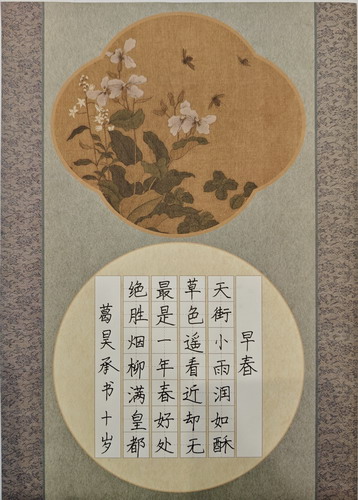 早春
天街小雨润如酥
草色遥看近却无
最是一年春好处
绝胜烟柳满皇都
葛昊承书十岁